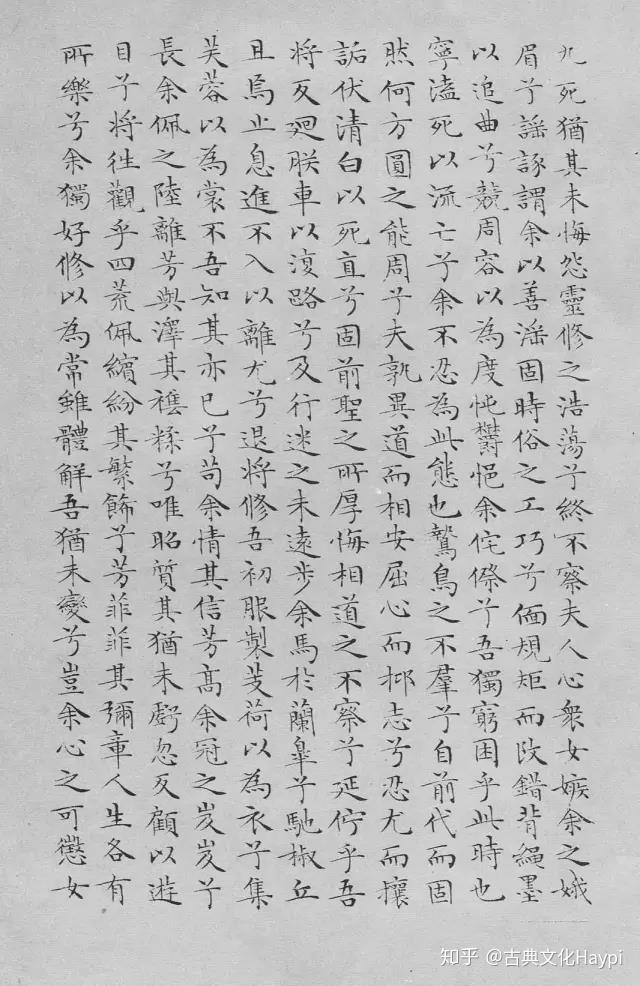 九死猶其未悔怨靈修之浩蕩兮終不察夫人心衆女嫉余之娥
眉兮謡諑謂余以善滛固時俗之工巧兮偭規矩而改錯背繩墨
以追曲兮競周容以為度忳鬱悒余侘傺兮吾獨窮困乎此時也
寧溘死以流亡兮余不忍為此態也鷙鳥之不羣兮自前代而固
然何方圓之能周兮夫孰異道而相安屈心而抑志兮忍尤而攘
詬伏清白以死直兮固前聖之所厚悔相道之不察兮延佇乎吾
將反廻朕車以復路兮及行迷之未遠步余馬於蘭皋兮馳椒丘
且焉止息進不入以離尤兮退將修吾初服製芰荷以為衣兮集
芙蓉以為裳不吾知其亦已兮苟余情其信芳高余冠之岌岌兮
長余佩之陸離芳與澤其雜糅兮唯昭質其猶未虧忽反顧以遊
目兮將往觀乎四荒佩繽紛其繁飾兮芳菲菲其彌章人生各有
所樂兮余獨好修以為常雖體解吾猶未變兮豈余心之可懲女
知乎 @古典文化Haypi